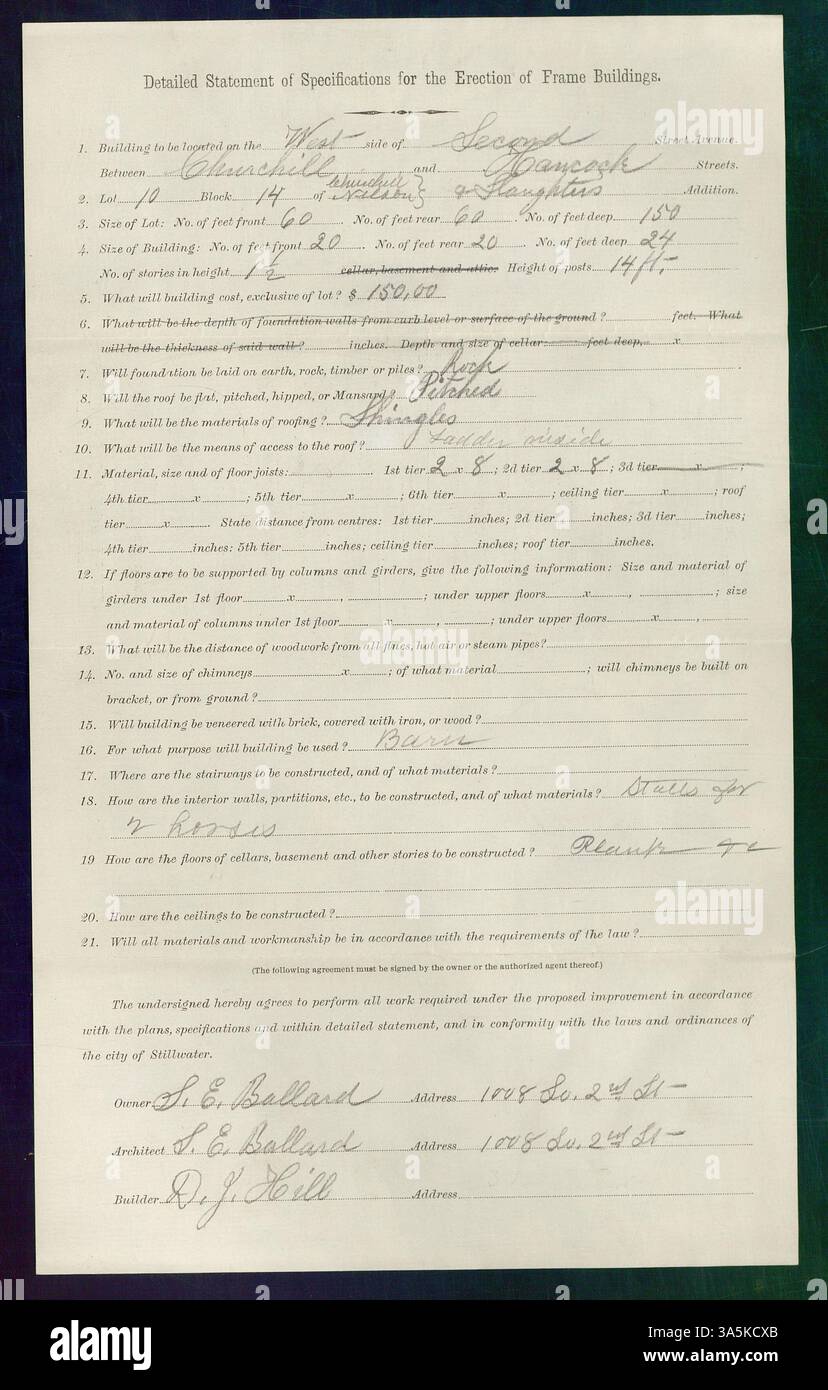 Detailed Statement of Specifications for the Erection of Frame Buildings.
1. Building to be located on the West side of Second Street Avenue.
Between Churchill and Hancock Streets.
2. Lot 10 Block 14 of Churchill Nelson } & Slaughters Addition.
3. Size of Lot: No. of feet front 60 No. of feet rear 60. No. of feet deep 150
4. Size of Building: No. of feet front 20 No. of feet rear 20 No. of feet deep 24
No. of stories in height 1 1/2 cellar, basement and attic. Height of posts 14 ft.
5. What will building cost, exclusive of lot? $ 150,00
6. What will be the depth of foundation walls from curb level or surface of the ground? feet. What
will be the thickness of said wall? inches. Depth and size of cellar: feet deep, x
7. Will foundation be laid on earth, rock, timber or piles? Rock
8. Will the roof be flat, pitched, hipped, or Mansard? Pitched
9. What will be the materials of roofing? Shingles
10. What will be the means of access to the roof? Ladder inside
11. Material, size and of floor joists: 1st tier 2 x 8; 2d tier 2 x 8; 3d tier x ;
4th tier x ; 5th tier x ; 6th tier x ; ceiling tier x ; roof
tier x . State distance from centres: 1st tier inches; 2d tier inches; 3d tier inches;
4th tier inches: 5th tier inches; ceiling tier inches; roof tier inches.
12. If floors are to be supported by columns and girders, give the following information: Size and material of
girders under 1st floor x , ; under upper floors x , ; size
and material of columns under 1st floor x , ; under upper floors x ,
13. What will be the distance of woodwork from all flues, hot air or steam pipes?
14. No. and size of chimneys x ; of what material ; will chimneys be built on
bracket, or from ground?
15. Will building be veneered with brick, covered with iron, or wood?
16. For what purpose will building be used? Barn
17. Where are the stairways to be constructed, and of what materials?
18. How are the interior walls, partitions, etc., to be constructed, and of what materials? Stalls for
2 horses
19 How are the floors of cellars, basement and other stories to be constructed? Plank &c
20. How are the ceilings to be constructed?
21. Will all materials and workmanship be in accordance with the requirements of the law?
(The following agreement must be signed by the owner or the authorized agent thereof.)
The undersigned hereby agrees to perform all work required under the proposed improvement in accordance
with the plans, specifications and within detailed statement, and in conformity with the laws and ordinances of
the city of Stillwater.
Owner S. E. Ballard Address 1008 So. 2nd St
Architect S. E. Ballard Address 1008 So. 2nd St
Builder D. J. Hill Address
alamy
Image ID: 3A5KCXB
www.alamy.com